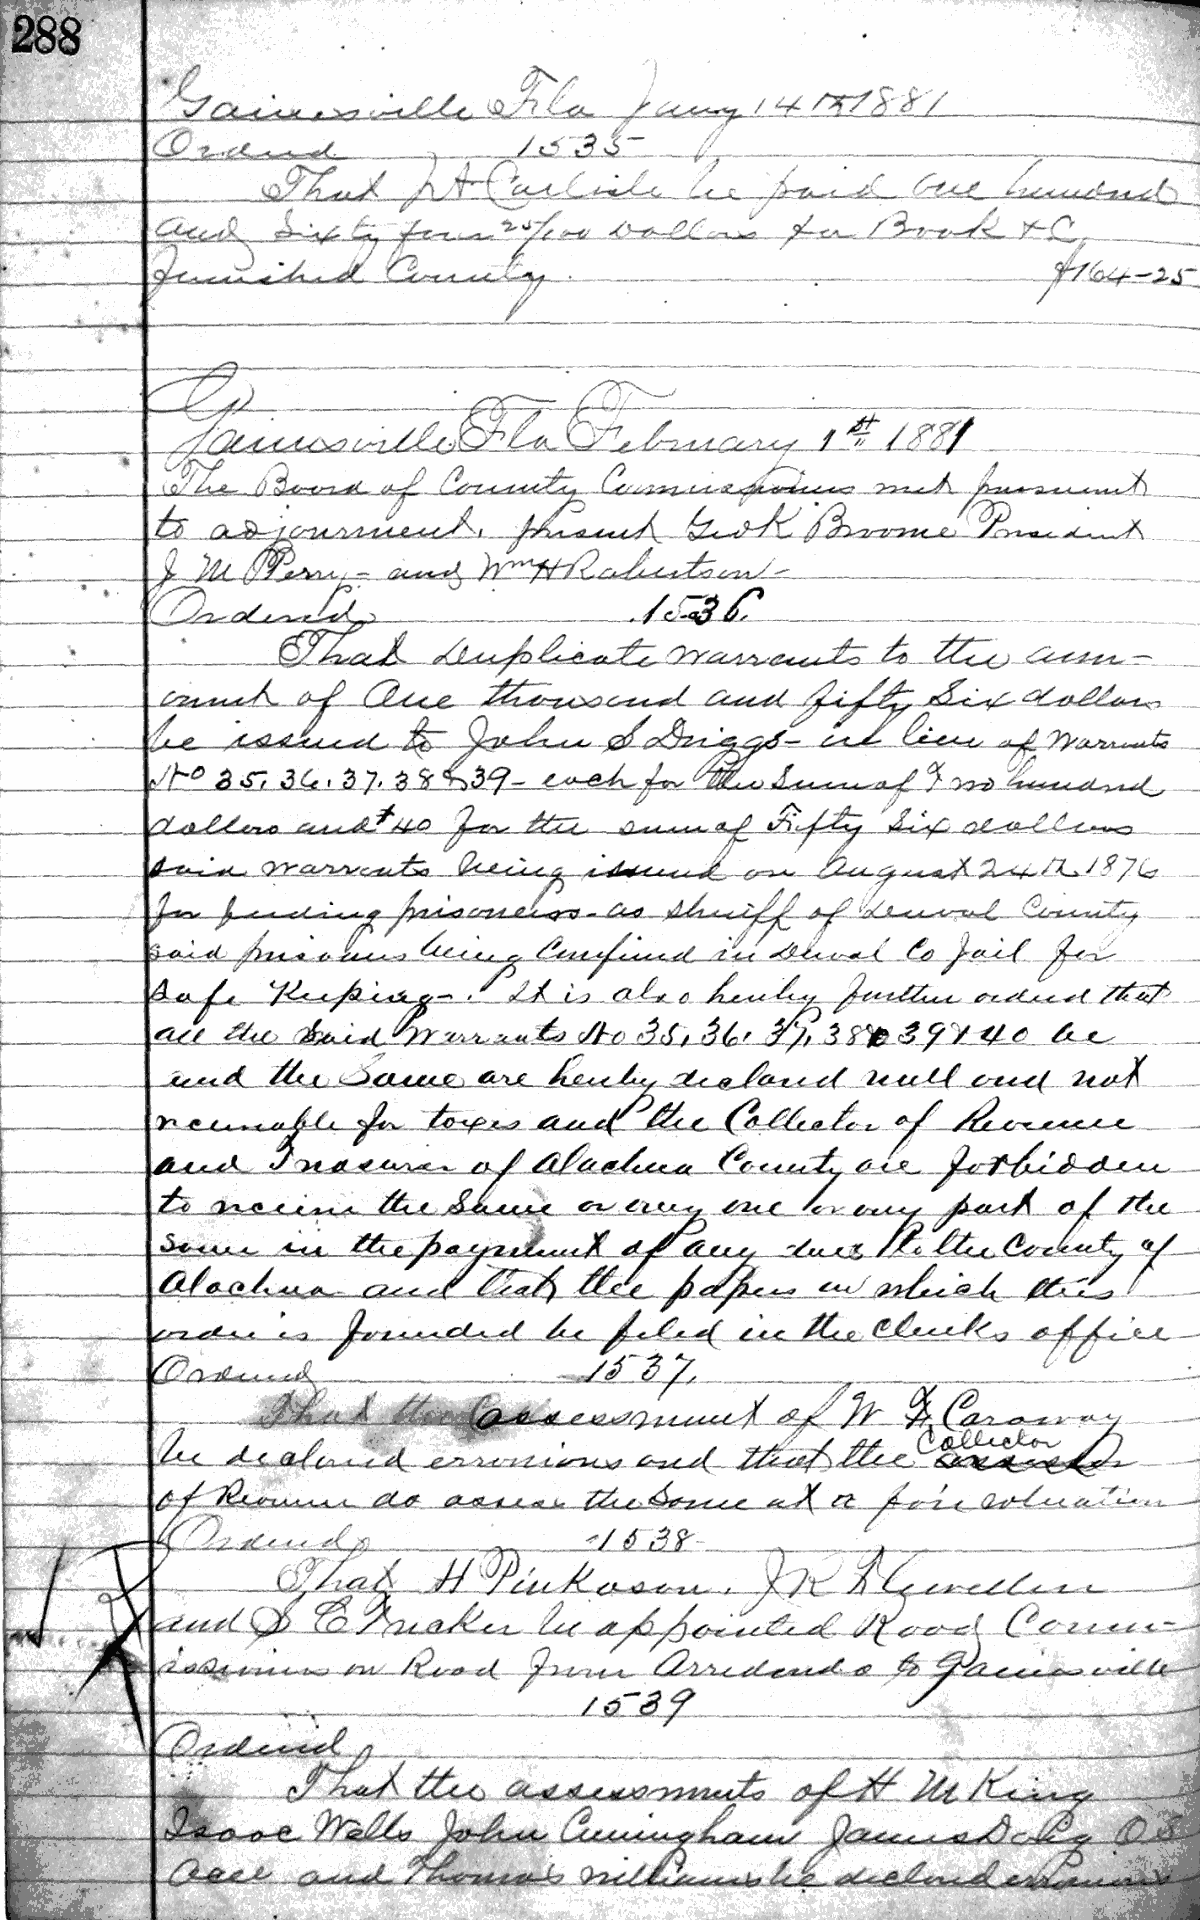 288
Gainesville Fla Jany 14th 1881
Ordered 1535
That J A Carlisle be paid one hundred
and Sixty four 25/100 Dollars for Book &C
furnished County. $164-25
Gainesville Fla February 1st 1881
The Board of County Commissioners met pursuant
to adjournment. present Geo K Broome President
J M Perry - and Wm H Robertson -
Ordered 1536.
That duplicate warrants to the am-
ount of One thousand and fifty Six dollars
be issued to John S Driggs - in lieu of Warrants
No 35, 36, 37, 38 & 39 - each for the Sum of Two hundred
dollars and # 40 for the sum of Fifty Six dollars
said warrants being issued on August 24th 1876
for feeding prisoners - as sheriff of Duval County
said prisoners being Confined in Duval Co Jail for
Safe Keeping -. It is also hereby further ordered that
all the Said Warrants No 35, 36, 37, 38 & 39 & 40 be
and the Same are hereby declared null and not
receivable for taxes and the Collector of Revenue
and Treasurer of Alachua County are forbidden
to receive the Same or any one or any part of the
same in the payment of any dues to the County of
Alachua and that the papers on which this
order is founded be filed in the Clerks office
Ordered 1537.
That the assessment of W F Caraway
be declared erronious and that the Collector
of Revenue do assess the Same at a fair valuation
Ordered 1538
That H Pinkoson, J R Llewellen
and S E Tucker be appointed Road Comm-
issioners on Road from Arredondo to Gainesville
1539
Ordered
That the assessments of H M King
Isaac Wells John Cuningham James Doig O S
and Thomas Williams be declared erronious